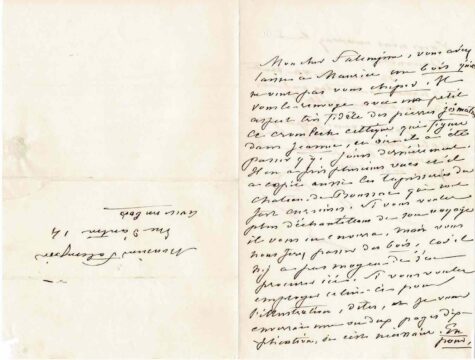 Mon cher Falempin, vous avez
laissé à Maurice un bois qu'il
ne veut pas vous chiper. Il
vous le renvoye avec un petit
aspect très fidèle des pierres jomatres
ce cromlech celtique qui figure
dans Jeanne, où il a été
passer q.q. jours dernièrement.
Il en a pris plusieurs vues et il
a copié aussi les tapisseries du
chateau de Boussac qui sont
fort curieuses. Si vous voulez
plus d'échantillons de son voyage
il vous en enverra, mais vous
nous ferez passer des bois, car il
n'y a pas moyen de s'en
procurer ici. Si vous voulez
employer celui-là pour
l'illustration, dites, et je vous
enverrai une ou deux pages d'ex-
plication, si c'est nécessaire. En
Monsieur Falempin
rue d'Antin 14
avec un bois